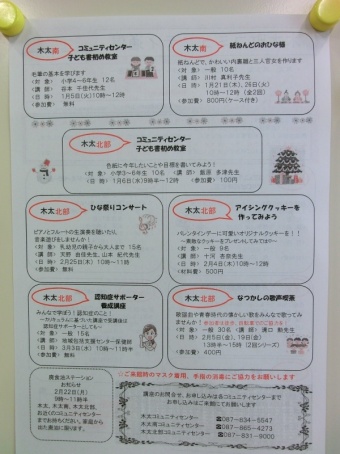 木太南
コミュニティセンター
子ども書初め教室
毛筆の基本を学びます
<対 象> 小学4～6年生 12名
<講 師> 谷本 千佳代先生
<日 時> 1月5日(火)10時～12時
<参加費> 無料
木太南
紙ねんどのおひな様
紙ねんどで、かわいい内裏雛と三人官女を作ります
<対 象> 一般 10名
<講 師> 川村 真利子先生
<日 時> 1月21日(木)、26日(火)
10時～12時 (全2回)
<参加費> 800円(ケース付き)
木太北部
コミュニティセンター
子ども書初め教室
色紙に今年したいことや目標を書いてみよう!
<対 象> 小学3～6年生 10名
<講 師> 飯原 多津先生
<日 時> 1月6日(水)9時半～12時
<参加費> 100円
木太北部
ひな祭りコンサート
ピアノとフルートの生演奏を聴いたり、
音楽遊びをしませんか!
<対 象> 乳幼児の親子から大人まで 15名
<講 師> 天野 由佳先生、山本 紀代先生
<日 時> 2月25日(木) 10時～11時
<参加費> 無料
木太北部
アイシングクッキーを
作ってみよう
バレンタインデーに可愛いオリジナルクッキーを!!
<対 象> 一般 9名
<講 師> 十河 杏奈先生
<日 時> 2月4日(木)10時～12時
<材料費> 500円
木太北部
認知症サポーター
養成講座
みんなで学ぼう!認知症のこと!
<対 象> 一般 15名
<講 師> 地域包括支援センター保健師
<日 時> 3月3日(水) 10時～11時半
<参加費> 無料
木太北部
なつかしの歌声喫茶
<対 象> 一般 30名
<講 師> 溝口 剛先生
<日 時> 2月5日(金)、19日(金)
13時半～15時 (2回シリーズ)
<参加費> 400円
☆ご来館時のマスク着用、手指の消毒にご協力をお願いします
お知らせ
2月22日(月)
9時～11時半
木太、木太南、木太北部、
講座のお問合せ、お申し込みは各コミュニティセンターまで
お申し込みはご来館にてお願いします!
木太コミュニティセンター ☎087-834-5547
木太南コミュニティセンター ☎087-865-4273
木太北部コミュニティセンター ☎087-831-8000